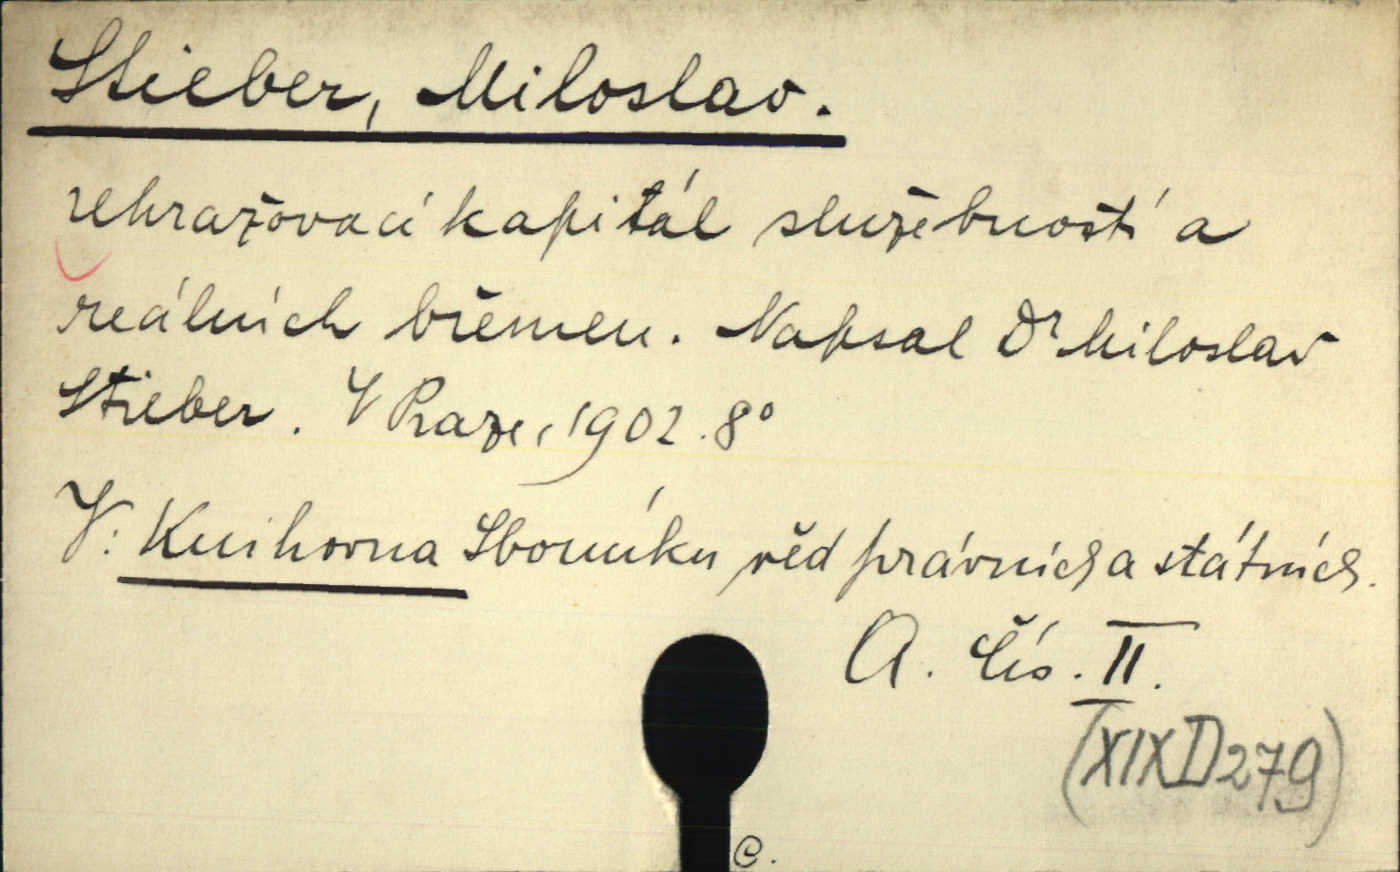 Stieber, Miloslav.
Uhrazovací kapitál služebností a
reálních břemen. Napsal Dr Miloslav
Stieber. V Praze, 1902. 8°
V: Knihovna Sborníku věd právních a státních.
A. čís. II.
(XIX D 279)
C.